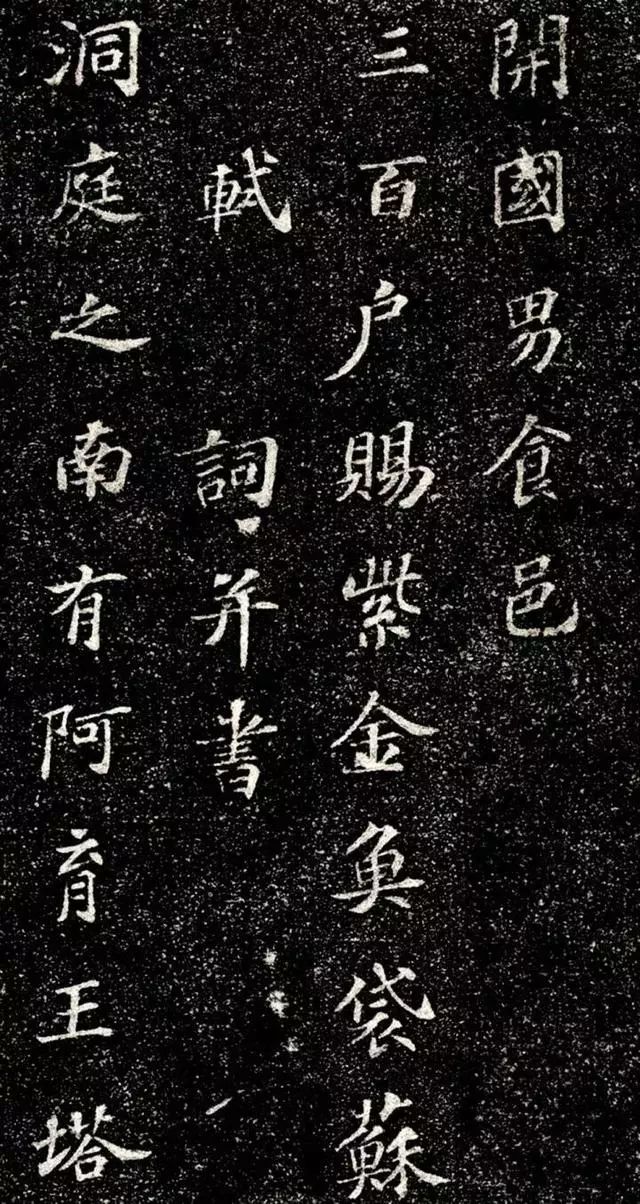 開國男食邑
三百户賜紫金魚袋蘇
軾 詞并書
洞庭之南有阿育王塔